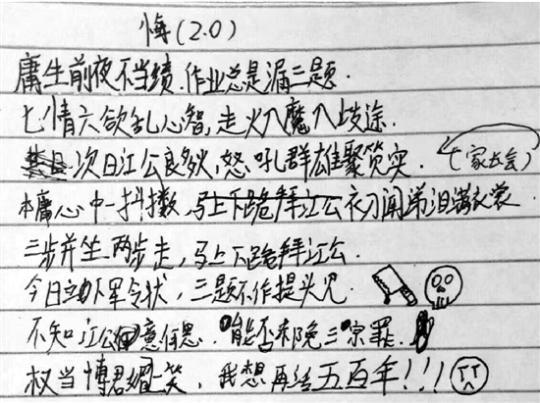 悔(2.0)
庸生前夜不当绩.作业总是漏三题.
七情六欲乱心智,走火入魔入歧途.
次日江公良多处,怒吼群雄聚篔实.(家长会)
本庸心中一抖擞,初闻涕泪满衣裳.
三步并坐两步走,马上下跪拜江公.
今日立下军令状,三题不作提头见.
不知江公意何思.能否却晚三宗罪.
权当博君耀一笑,我想再活五百年!!!